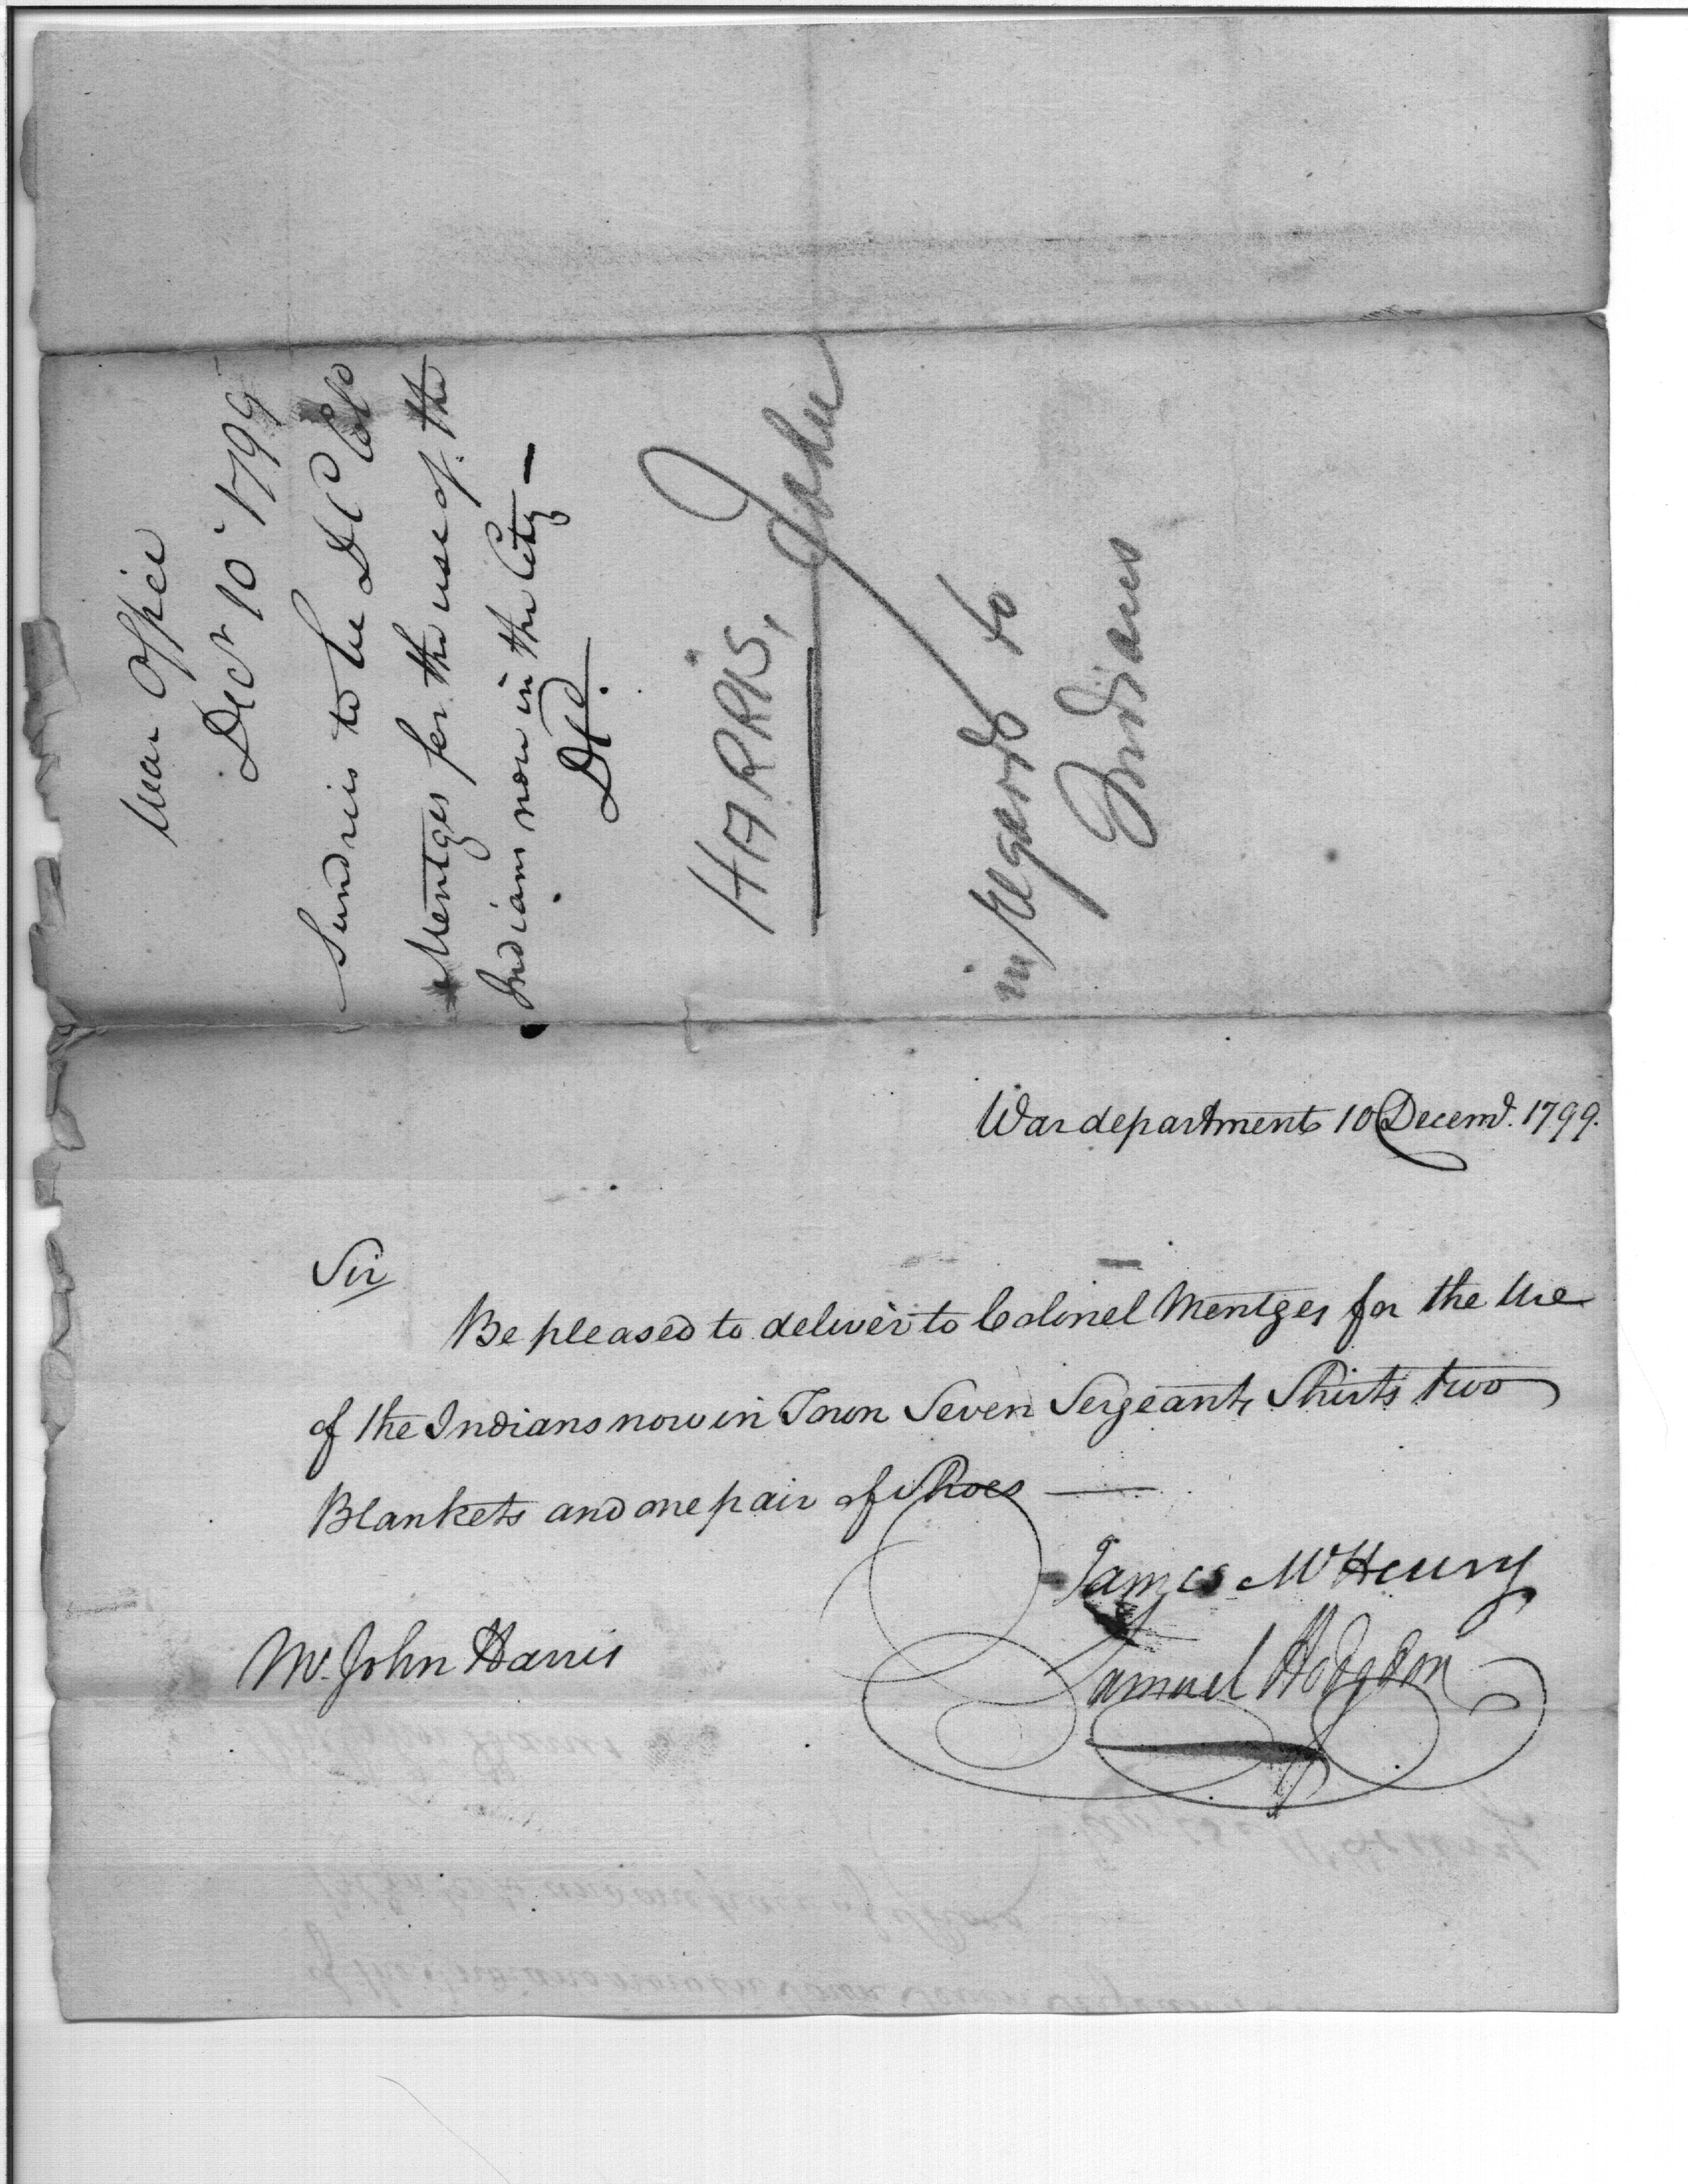 War Office
Decr 10 1799
Sundries to be DD Colo
Mentges for the use of the
Indians now in the City —
DD.
HARRIS, John
in regards to
Indians
War department 10 Decemr. 1799.
Sir
Be pleased to deliver to Colonel Mentges for the Use
of the Indians now in Town Seven Sergeants Shirts two
Blankets and one pair of Shoes —
James McHenry
Samuel Hodgdon
Mr. John Harris